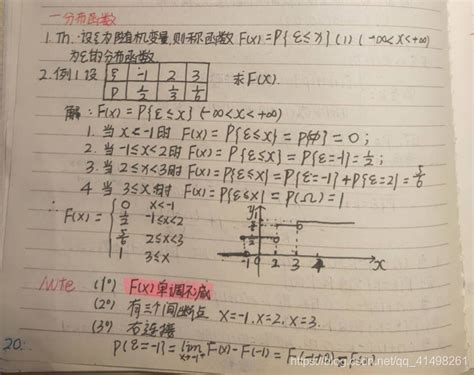 一分布函数
1. Th. 设ξ为随机变量,则称函数 F(x)=P{ξ≤x} (1) (-∞<x<+∞)
为ξ的分布函数
2. 例1 设 ξ -1 2 3 求F(x).
P 1/2 1/3 1/6
解: F(x)=P{ξ≤x} (-∞<x<+∞)
1. 当 x<-1时 F(x)=P{ξ≤x}=P{φ}=0;
2. 当 -1≤x<2时 F(x)=P{ξ≤x}=P{ξ=-1}=1/2;
3. 当 2≤x<3时 F(x)=P{ξ≤x}=P{ξ=-1}+P{ξ=2}=5/6
4 当 3≤x时 F(x)=P{ξ≤x}=P(Ω)=1
∴ F(x)= { 0 x<-1
1/2 -1≤x<2
5/6 2≤x<3
1 3≤x
y 1
-1 0 2 3 x
Note (1°) F(x)单调不减
(2°) 有三个间断点 x=-1, x=2, x=3.
(3°) 右连接
20:
P{ξ=-1}=lim F(x)-F(-1)=
https://blog.csdn.net/qq_41498261